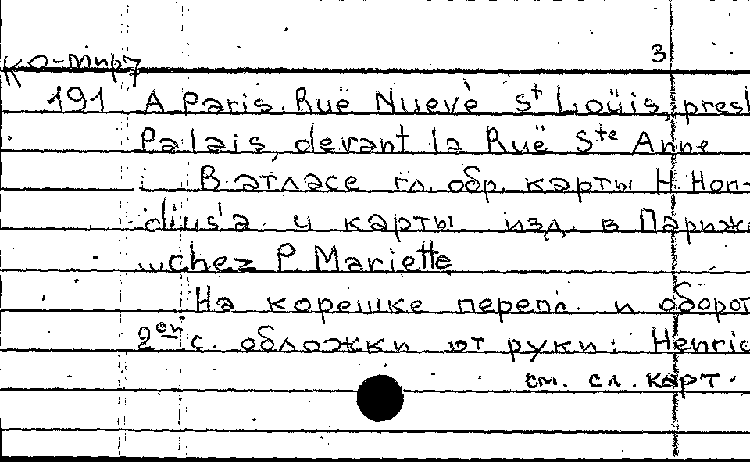 3
КО-мир7
191 A Paris, Ruë Nuevè St Loüis, presl
Palais, devant la Ruë Ste Anne
В атласе гл. обр. карты H. Hon-
dius'a и карты изд. в Париж
chez P. Mariette
На корешке перепл. и оборот
2ой с. обложки от руки: Henric
см. сл. карт.